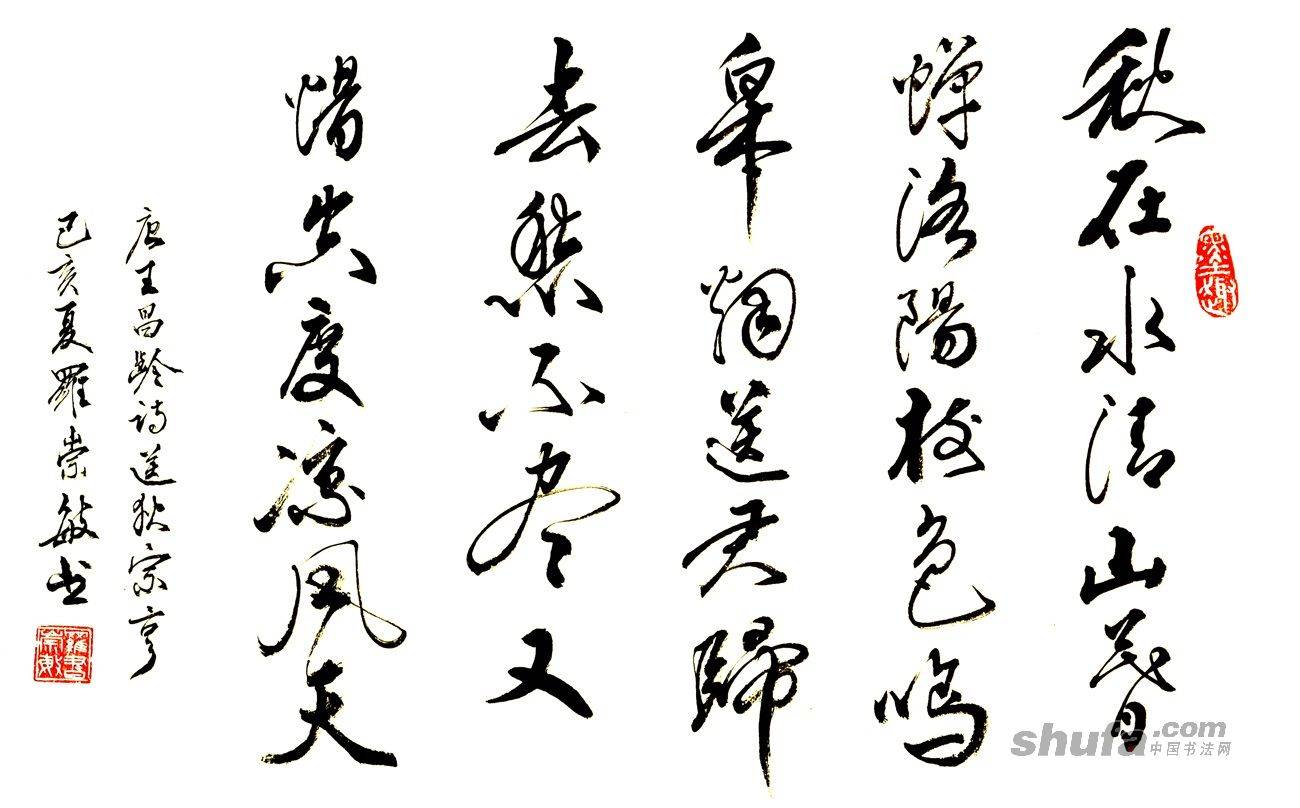 秋在水清山暮
蝉洛陽树色鳴
皋烟送君歸
去愁不尽又
惜空度凉风天
唐王昌龄诗送狄宗亨
己亥夏羅崇敏书
shufa.com
中国书法网